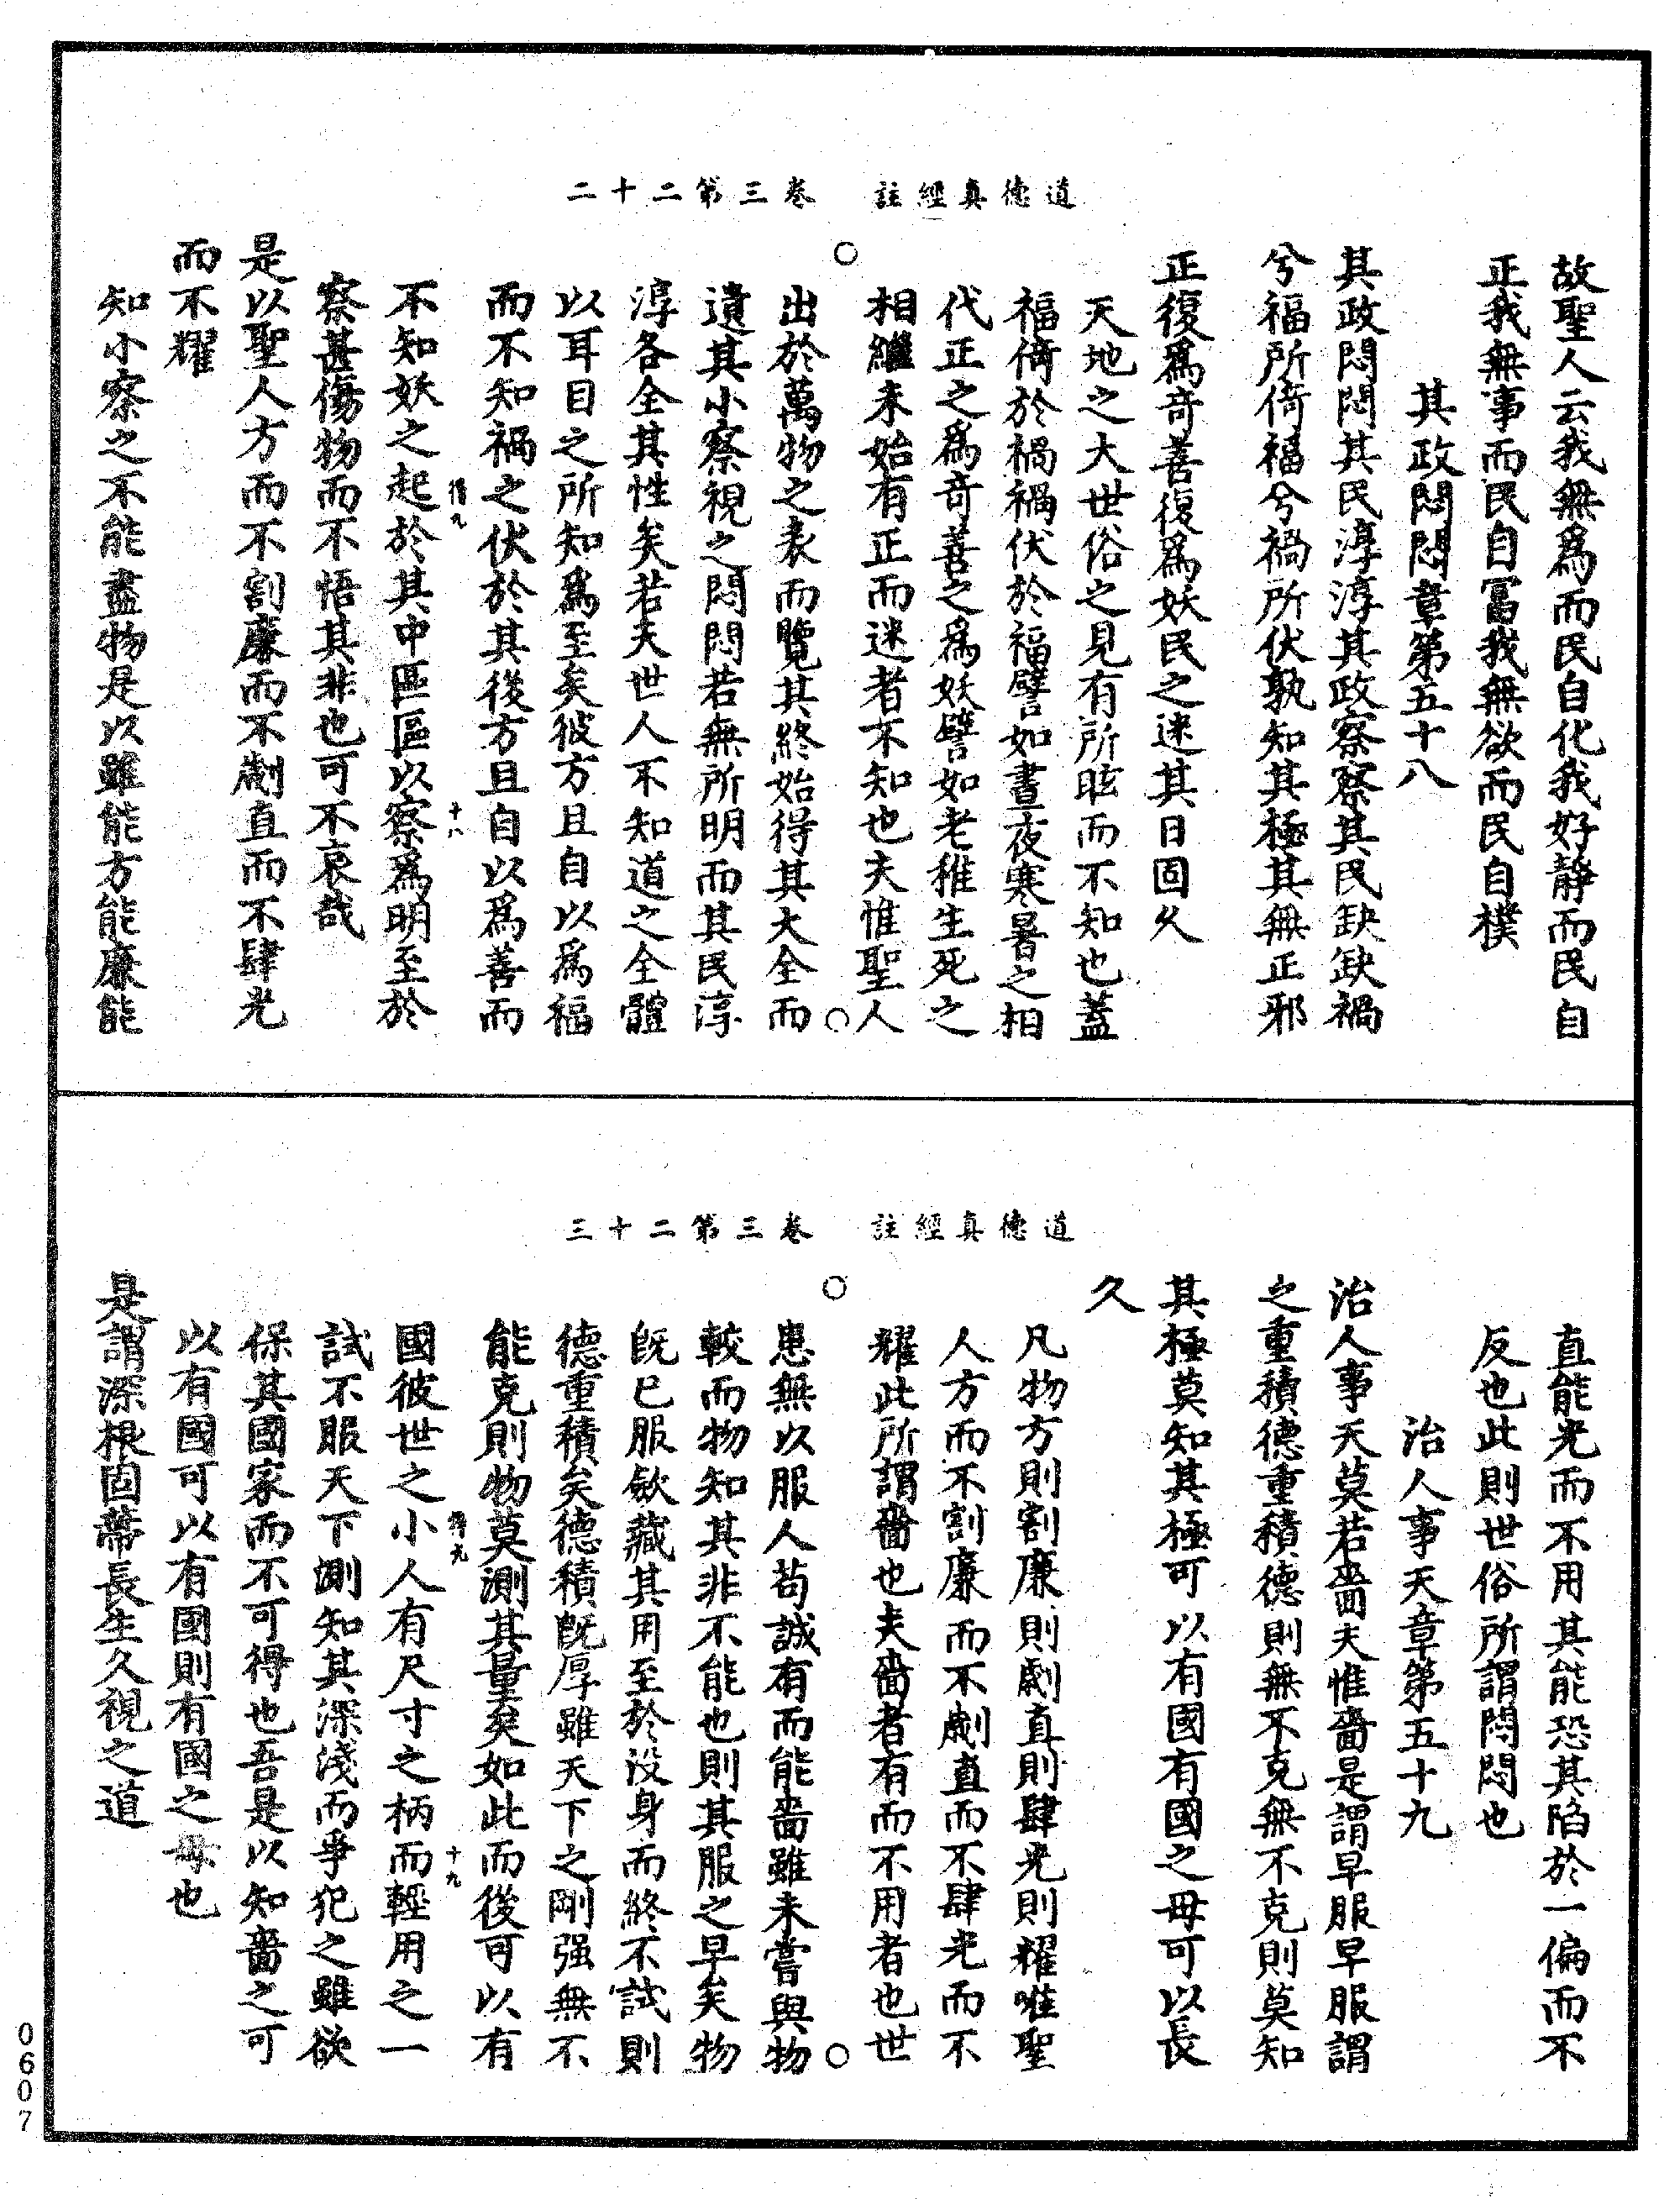 道德真經註　卷三第二十二
故聖人云我無爲而民自化我好靜而民自
正我無事而民自富我無欲而民自樸
其政悶悶章第五十八
其政悶悶其民淳淳其政察察其民缺缺禍
兮福所倚福兮禍所伏孰知其極其無正邪
正復爲奇善復爲妖民之迷其日固久
天地之大世俗之見有所眩而不知也蓋
福倚於禍禍伏於福譬如晝夜寒暑之相
代正之爲奇善之爲妖譬如老稚生死之
相繼未始有正而迷者不知也夫惟聖人
出於萬物之表而覽其終始得其大全而
遺其小察視之悶悶若無所明而其民淳
淳各全其性矣若夫世人不知道之全體
以耳目之所知爲至矣彼方且自以爲福
而不知禍之伏於其後方且自以爲善而
不知妖之起於其中區區以察爲明至於
十八
察甚傷物而不悟其非也可不哀哉
是以聖人方而不割廉而不劌直而不肆光
而不耀
知小察之不能盡物是以雖能方能廉能
道德真經註　卷三第二十三
直能光而不用其能恐其陷於一偏而不
反也此則世俗所謂悶悶也
治人事天章第五十九
治人事天莫若嗇夫惟嗇是謂早服早服謂
之重積德重積德則無不克無不克則莫知
其極莫知其極可以有國有國之母可以長
久
凡物方則割廉則劌直則肆光則耀唯聖
人方而不割廉而不劌直而不肆光而不
耀此所謂嗇也夫嗇者有而不用者也世
患無以服人苟誠有而能嗇雖未嘗與物
較而物知其非不能也則其服之早矣物
旣已服斂藏其用至於没身而終不試則
德重積矣德積旣厚雖天下之剛强無不
能克則物莫測其量矣如此而後可以有
國彼世之小人有尺寸之柄而輕用之一
十九
試不服天下測知其深淺而爭犯之雖欲
保其國家而不可得也吾是以知嗇之可
以有國可以有國則有國之母也
是謂深根固蔕長生久視之道
0607